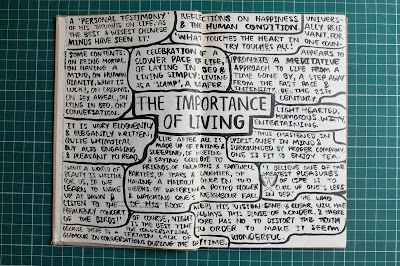 A "PERSONAL TESTIMONY
OF HIS THOUGHTS ON LIFE, AS THE
BEST & WISEST CHINESE
MINDS HAVE SEEN IT."
REFLECTIONS ON HAPPINESS
& THE HUMAN CONDITION.
"WHAT
TOUCHES THE HEART IN ONE
TRY TOUCHES ALL."
UNIVERS-
ALLY RELE-
VANT,
FOR
COUN-
SOME CONTENTS:
ON BEING MORTAL,
ON HAVING A
MIND, ON HUMAN
DIGNITY, WHAT IS
LUCK?, ON DREAMS,
ON SEX APPEAL, ON
LYING IN BED, ON
CONVERSATION.
A CELEBRATION OF A
SLOWER PACE OF LIFE,
OF LAYING IN BED &
LIVING SIMPLY; LIVING
AS A "SCAMP", A LOAFER
APPEARS TO
PROMOTE A MEDITATIVE
APPROACH TO LIFE FROM A
TIME GONE BY, A STEP AWAY
FROM THE FAST PACE &
OF THE 21ST
CENTURY.
THE IMPORTANCE
OF LIVING
LIGHT HEARTED,
HUMOROUS, WITTY,
ENTERTAINING.
IT IS VERY ELOQUENTLY
& ELEGANTLY WRITTEN;
QUITE WHIMSICAL
BUT ALSO ENGAGING
& PLEASANT TO READ.
"THUS CHASTENED IN
SPIRIT, QUIET IN MIND &
SURROUNDED BY PROPER COMPANY,
ONE IS FIT TO ENJOY TEA."
"LIFE AFTER ALL IS
MADE UP OF EATING &
SLEEPING, OF MEETING
& SAYING GOODBYE TO
FRIENDS, OF REUNIONS & FAREWELL
PARTIES, OF TEARS & LAUGHTER, OF
HAVING A HAIRCUT ONCE IN TWO
WEEKS, OF WATERING A POTTED FLOWER
& WATCHING ONE'S NEIGHBOUR FALL
OFF HIS ROOF."
"WHAT A WORLD OF
BEAUTY IS WAITING
FOR US, IF WE
LEARN TO WAKE
UP AT DAWN &
LISTEN TO THE
HEAVENLY CONCERT
OF THE BIRDS!"
"I BELIEVE ONE OF THE
GREATEST PLEASURES
OF LIFE IS TO
CURL UP ONE'S LEGS
IN BED"
"OF COURSE, NIGHT
IS THE BEST TIME
FOR CONVERSATION,
BECAUSE THERE IS A CERTAIN LACK OF
GLAMOUR IN CONVERSATIONS DURING THE DAYTIME."
"THE WHO
KEEPS HIS VISION SANE & CLEAR WILL HAVE
ALWAYS THIS SENSE OF WONDER, & THERE-
FORE HAS NO TO DISTORT THE TRUTH
IN ORDER TO MAKE IT SEEM
WONDERFUL."